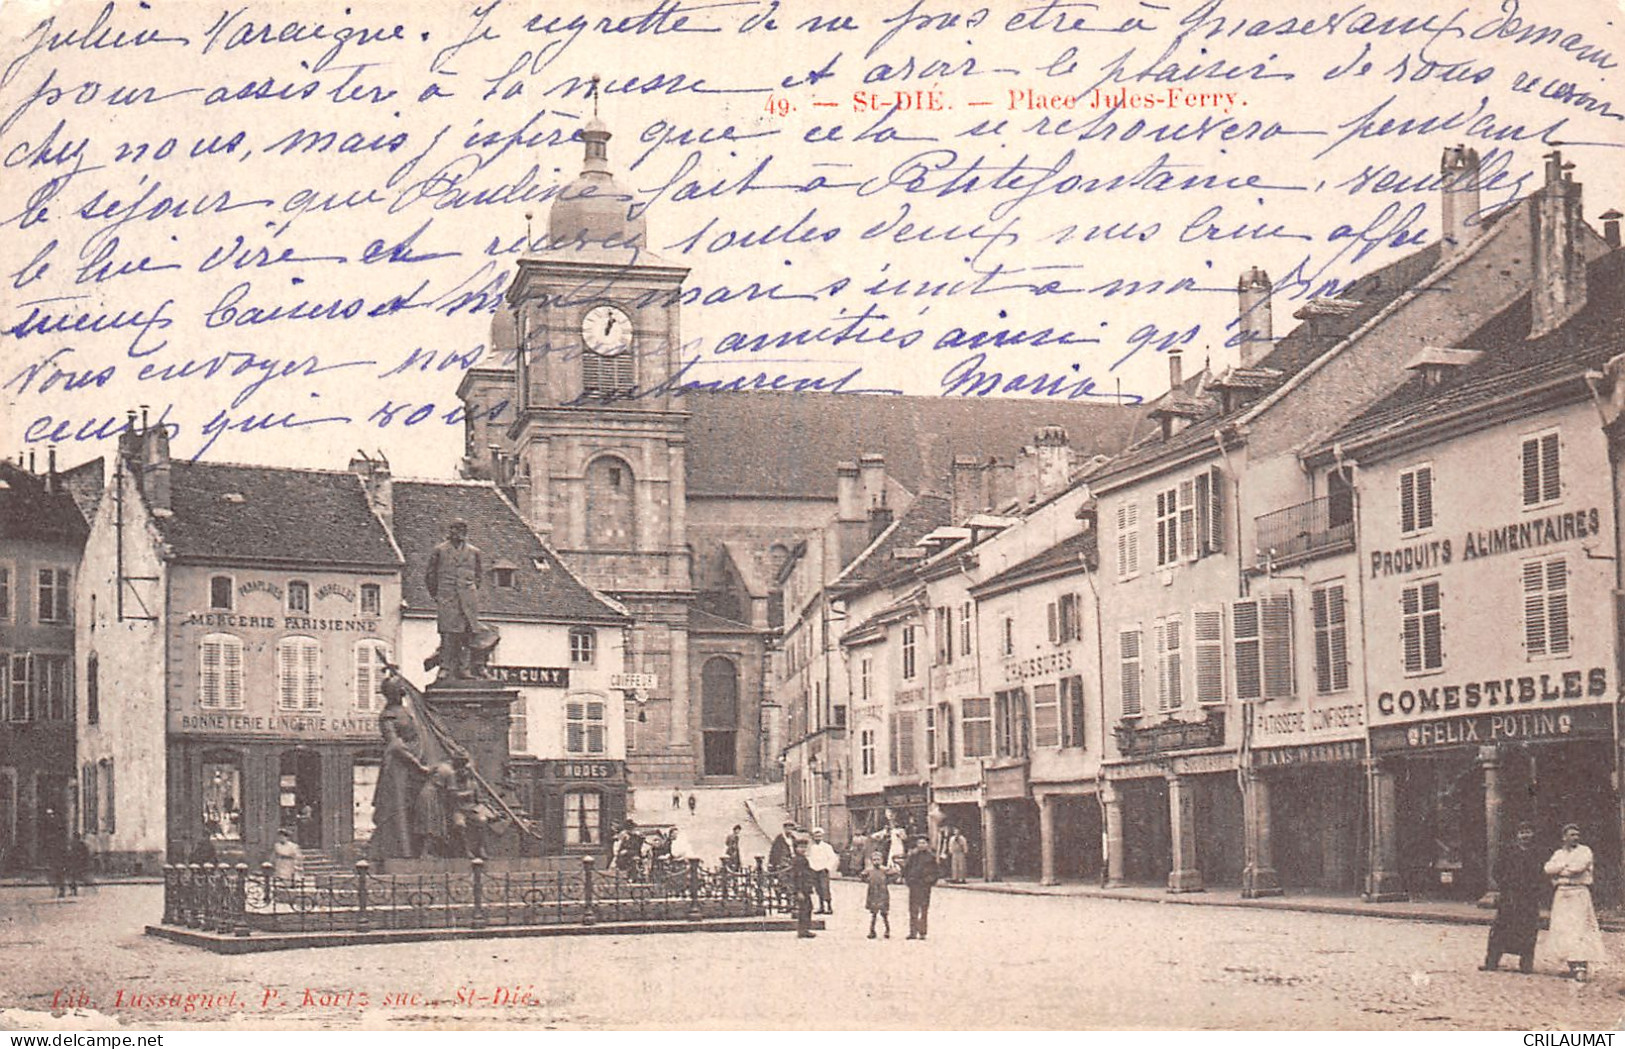 Julien Varaigne. Je regrette de ne pas être à Masevaux demain
pour assister à la messe et avoir le plaisir de vous recevoir
49. — St-DIÉ. — Place Jules-Ferry.
chez nous, mais j'espère que cela se retrouvera pendant
le séjour que Pauline fait à Petitefontaine, veuillez
le lui dire et recevez toutes deux mes bien affec-
tueux baisers et mon mari s'unit à moi pour
vous envoyer nos bonnes amitiés ainsi qu'à
ceux qui vous entourent Maria
PARAPLUIES OMBRELLES
MERCERIE PARISIENNE
BONNETERIE LINGERIE GANTERIE
IN-CUNY
COIFFEUR
MODES
CHAUSSURES
PATISSERIE CONFISERIE
HANS-WERNERT
PRODUITS ALIMENTAIRES
COMESTIBLES
FELIX POTIN
Lib. Lussagnet, P. Kortz suc., St-Dié.
CRILAUMAT